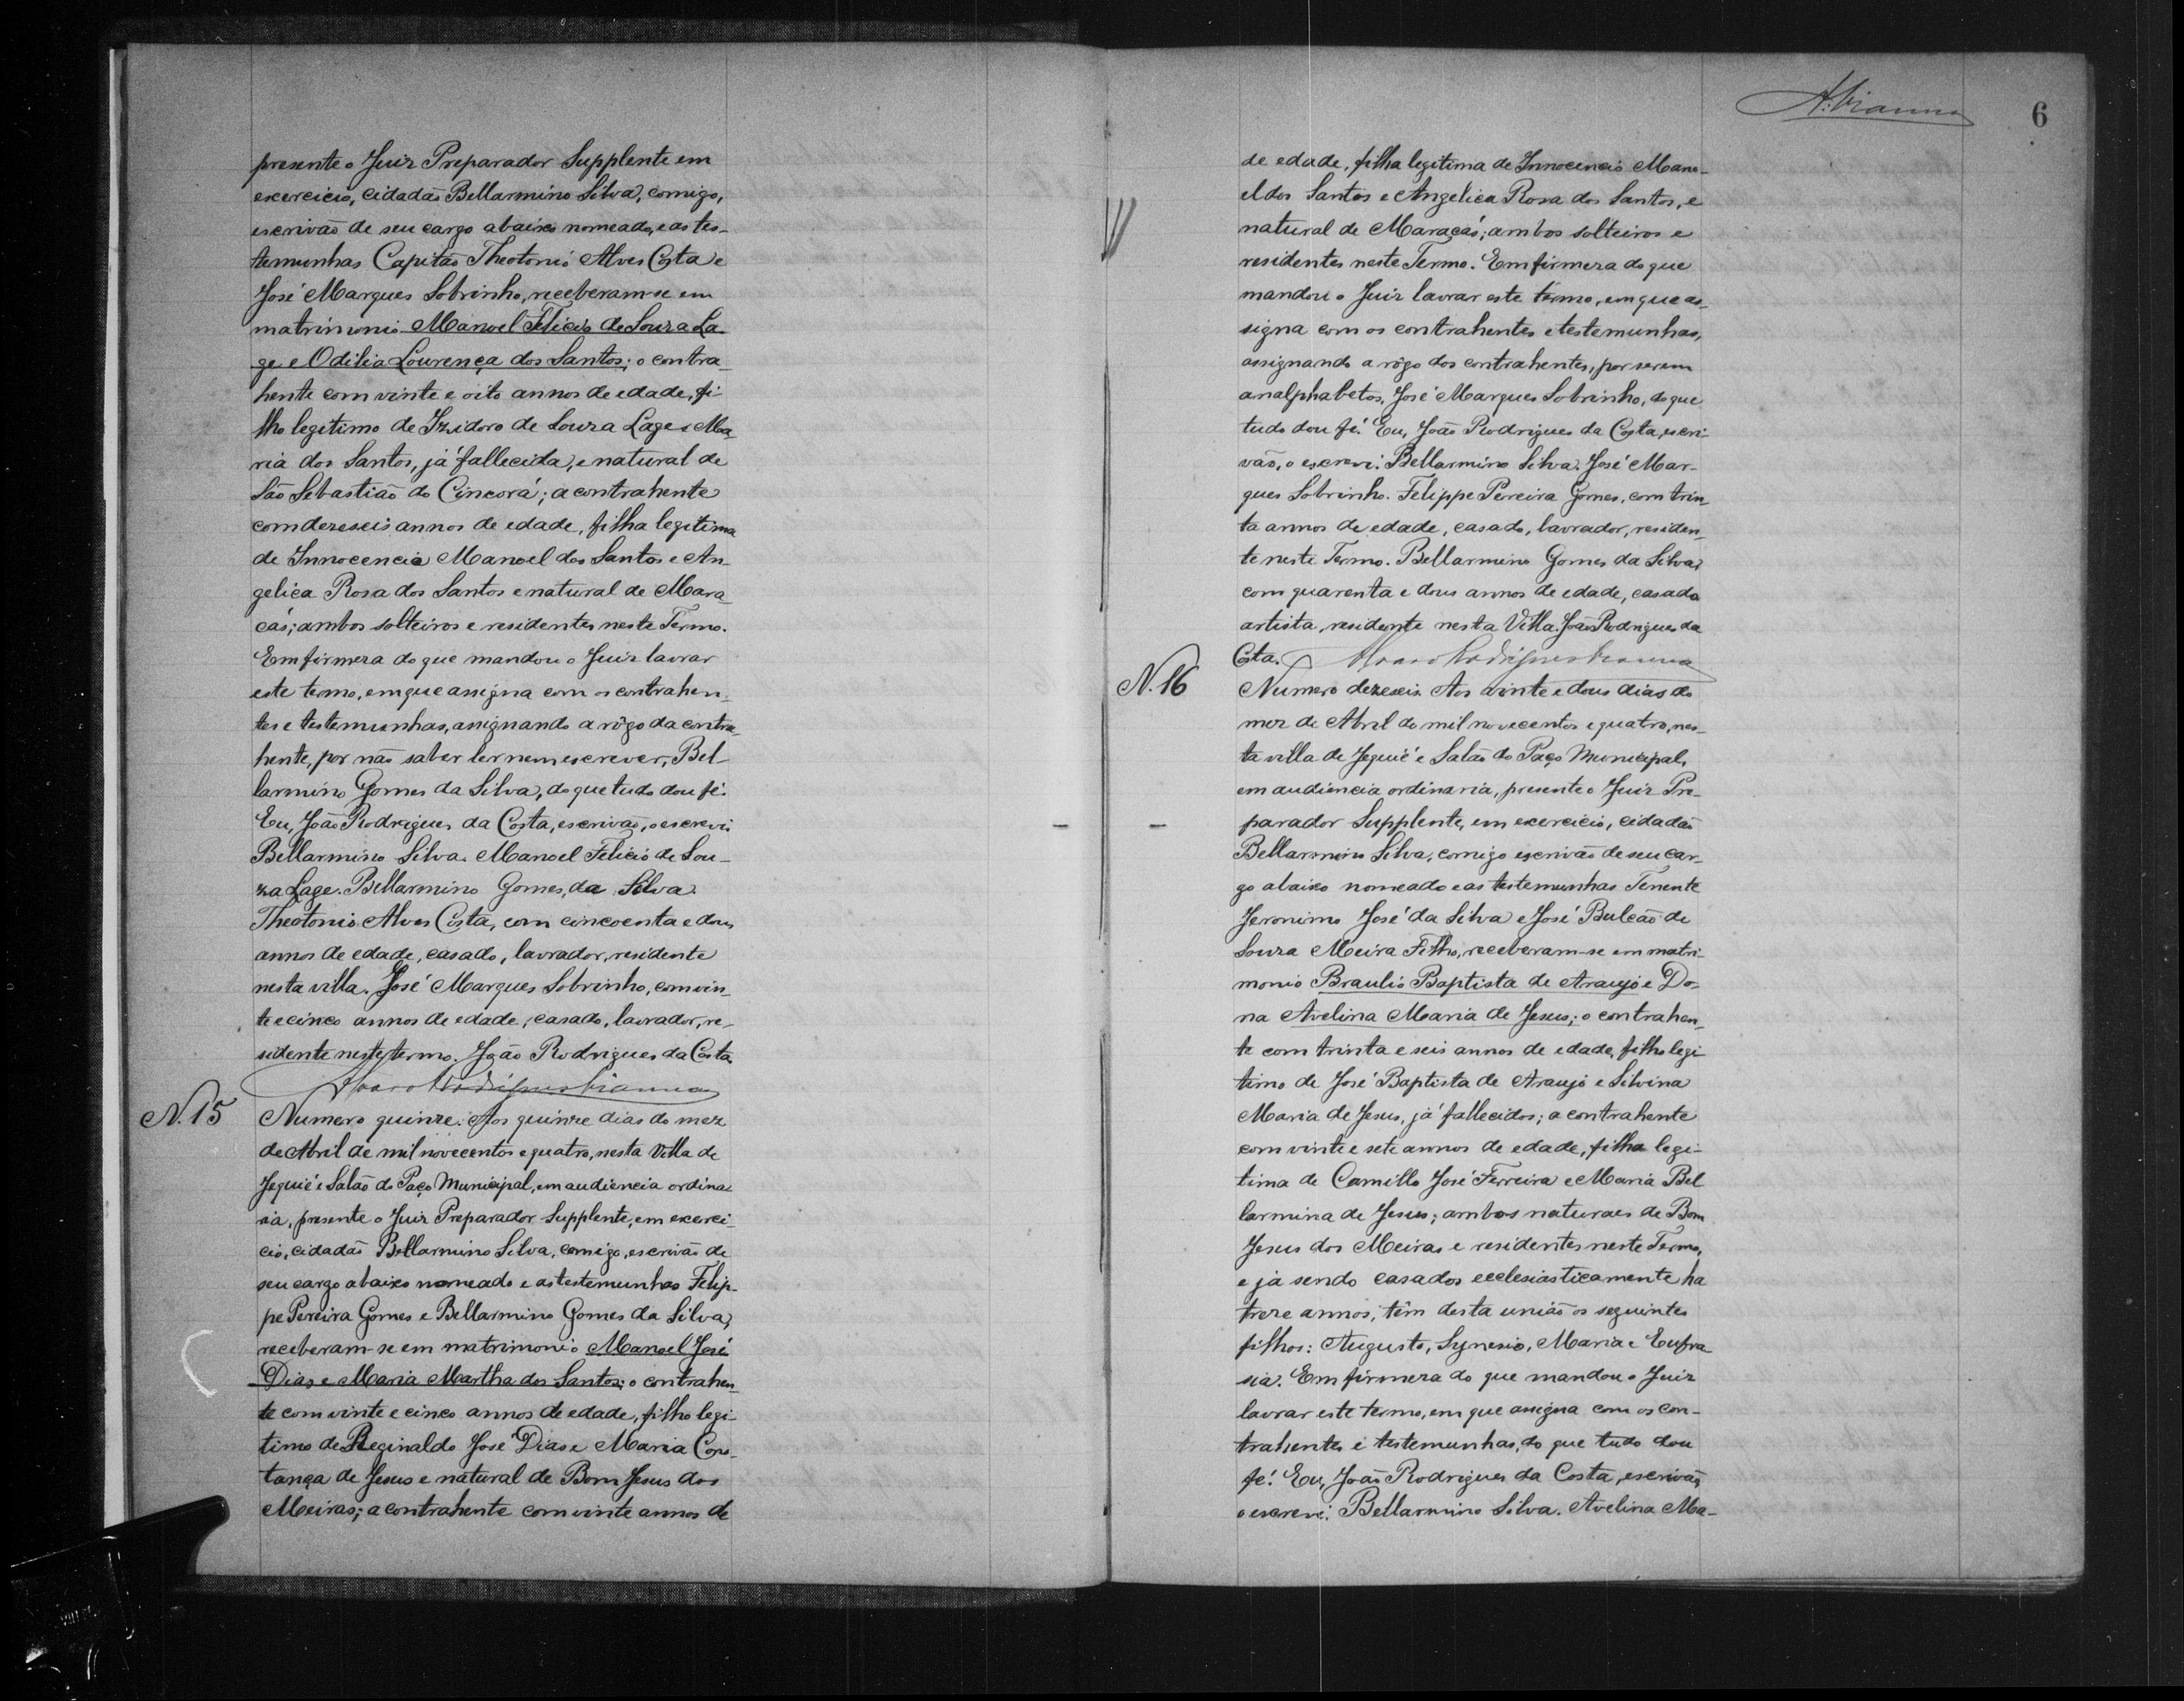 presente o Juiz Preparador Supplente em
exercicio, cidadão Bellarmino Silva, comigo,
escrivão de seu cargo abaixo nomeado, e as tes-
temunhas Capitão Theotonio Alves Costa e
José Marques Sobrinho, receberam-se em
matrimonio Manoel Felicio de Souza La-
ge e Odilia Lourença dos Santos; o contra-
hente com vinte e oito annos de edade, fi-
lho legitimo de Izidoro de Souza Lage e Ma-
ria dos Santos, já fallecida, e natural de
São Sebastião do Cincorá; a contrahente
com dezeseis annos de edade, filha legitima
de Innocencio Manoel dos Santos e An-
gelica Rosa dos Santos e natural de Mara-
cás; ambos solteiros e residentes neste Termo.
Em firmeza do que mandou o Juiz lavrar
este termo, em que assigna com os contrahen-
tes e testemunhas, assignando a rôgo da contra-
hente, por não saber ler nem escrever, Bel-
larmino Gomes da Silva, do que tudo dou fé.
Eu, João Rodrigues da Costa, escrivão, o escrevi.
Bellarmino Silva. Manoel Felicio de Sou-
za Lage. Bellarmino Gomes da Silva.
Theotonio Alves Costa, com cincoenta e dous
annos de edade, casado, lavrador, residente
nesta villa. José Marques Sobrinho, com vin-
te e cinco annos de edade, casado, lavrador, re-
sidente neste termo. João Rodrigues da Costa.
N. 15
Numero quinze. Aos quinze dias do mez
de Abril de mil novecentos e quatro, nesta Villa de
Jequié e Salão do Paço Municipal, em audiencia ordina-
ria, presente o Juiz Preparador Supplente, em exerci-
cio, cidadão Bellarmino Silva, comigo, escrivão de
seu cargo abaixo nomeado e as testemunhas Felip-
pe Pereira Gomes e Bellarmino Gomes da Silva,
receberam-se em matrimonio Manoel José
Dias e Maria Martha dos Santos; o contrahen-
te com vinte e cinco annos de edade, filho legi-
timo de Reginaldo José Dias e Maria Cons-
tança de Jesus e natural de Bom Jesus dos
Meiras; a contrahente com vinte annos de
A. Vianna
6
de edade, filha legitima de Innocencio Mano-
el dos Santos e Angelica Rosa dos Santos, e
natural de Maracás; ambos solteiros e
residentes neste Termo. Em firmeza do que
mandou o Juiz lavrar este termo, em que as-
signa com os contrahentes e testemunhas,
assignando a rôgo dos contrahentes, por serem
analphabetos, José Marques Sobrinho, do que
tudo dou fé. Eu, João Rodrigues da Costa, escri-
vão, o escrevi. Bellarmino Silva. José Mar-
ques Sobrinho. Felippe Pereira Gomes, com trin-
ta annos de edade, casado, lavrador, residen-
te neste Termo. Bellarmino Gomes da Silva,
com quarenta e dous annos de edade, casado
artista, residente nesta Villa. João Rodrigues da
Costa.
N. 16
Numero dezeseis. Aos vinte e dous dias do
mez de Abril de mil novecentos e quatro, nes-
ta villa de Jequié e Salão do Paço Municipal,
em audiencia ordinaria, presente o Juiz Pre-
parador Supplente, em exercicio, cidadão
Bellarmino Silva, comigo escrivão de seu car-
go abaixo nomeado e as testemunhas Tenente
Jeronimo José da Silva e José Bulcão de
Souza Meira Filho, receberam-se em matri-
monio Braulio Baptista de Araujo e Do-
na Avelina Maria de Jesus; o contrahen-
te com trinta e seis annos de edade, filho legi-
timo de José Baptista de Araujo e Silvina
Maria de Jesus, já fallecidos; a contrahente
com vinte e sete annos de edade, filha legi-
tima de Camillo José Ferreira e Maria Bel
larmina de Jesus; ambos naturaes de Bom
Jesus dos Meiras e residentes neste Termo,
e já sendo casados ecclesiasticamente ha
treze annos, têm desta união os seguintes
filhos: Augusto, Synesio, Maria e Eufra-
sia. Em firmeza do que mandou o Juiz
lavrar este termo, em que assigna com os con-
trahentes e testemunhas, do que tudo dou
fé. Eu, João Rodrigues da Costa, escrivão,
o escrevi. Bellarmino Silva. Avelina Ma-